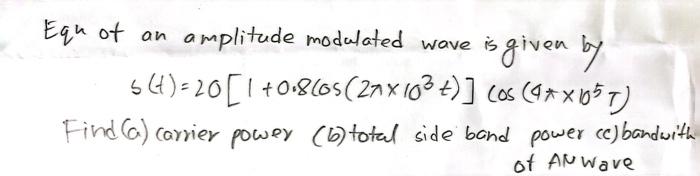 Eqn of an amplitude modulated wave is given by
s(t)=20[1+0.8cos(2π×10³t)] cos(4π×10⁵T)
Find(a) carrier power (b)total side band power (c)bandwith
of AN wave